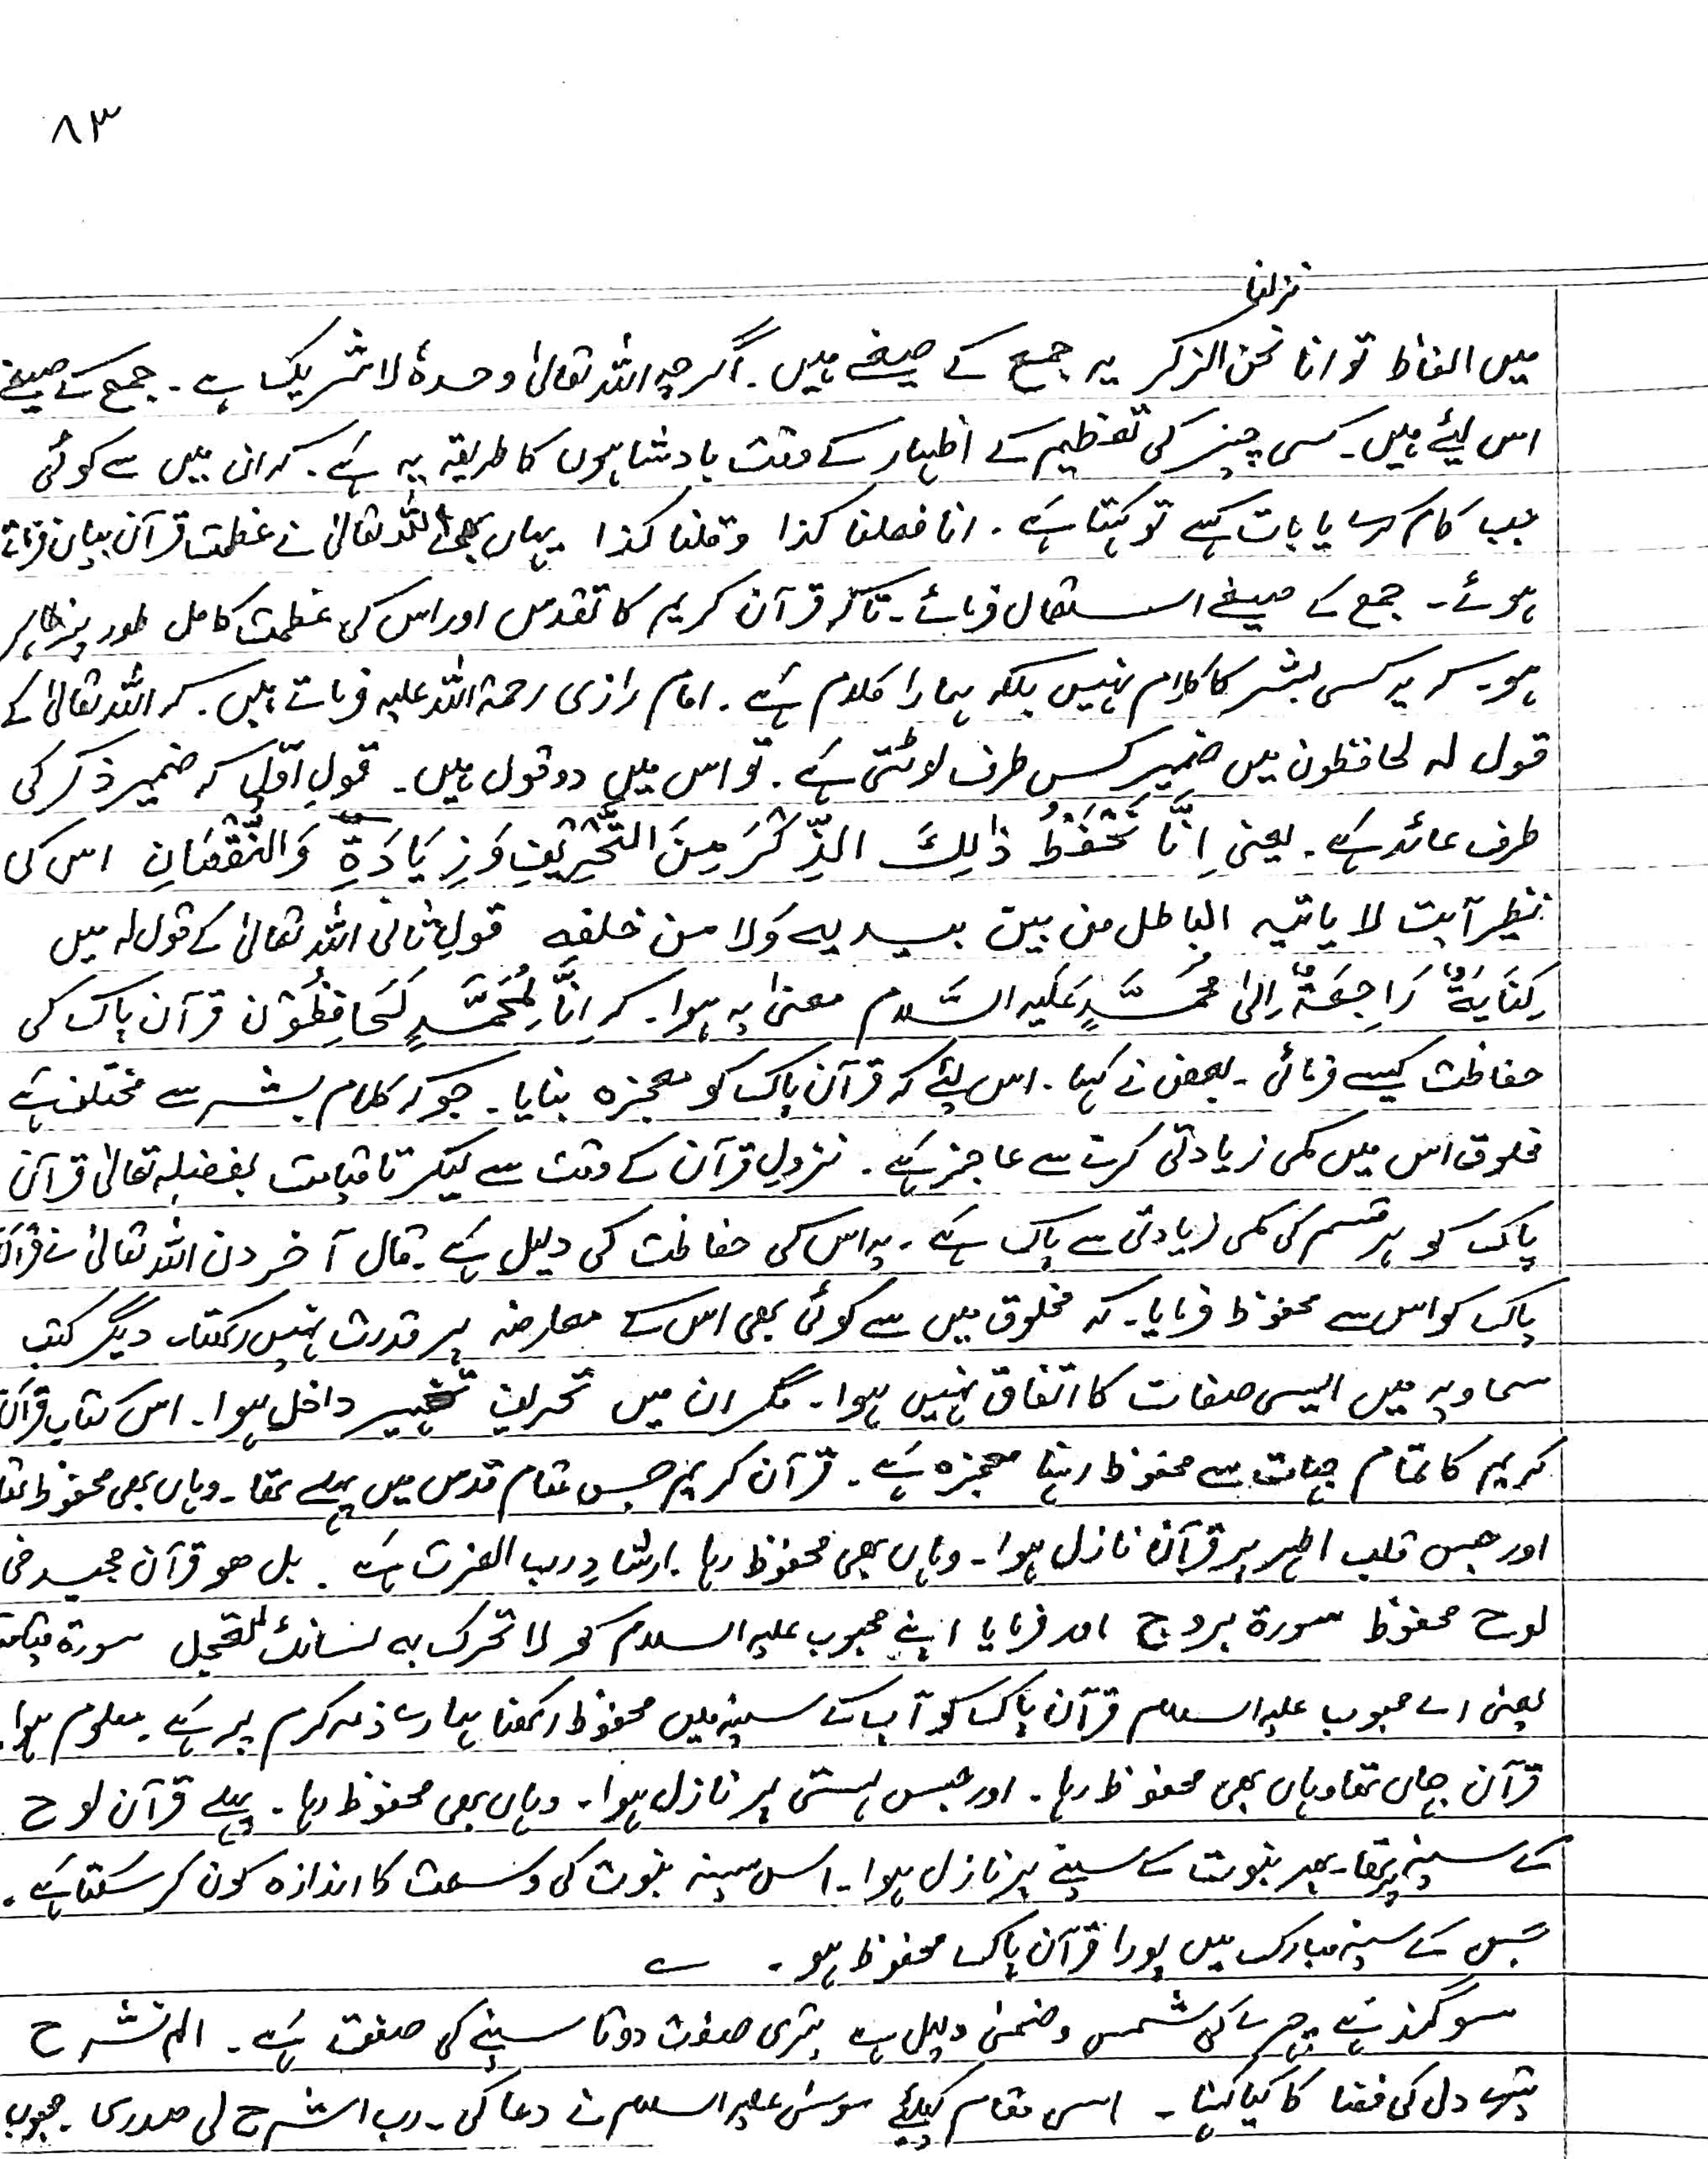 ٨٣
نزلنا
میں الفاظ تو انا نحن الذکر یہ جمع کے صیغے ہیں۔ اگرچہ اللہ تعالیٰ وحدہٗ لا شریک ہے۔ جمع کے صیغے
اس لیئے ہیں۔ کسی چیز کی تعظیم کے اظہار کے وقت بادشاہوں کا طریقہ یہ ہے۔ کہ ان میں سے کوئی
جب کام کرے یا بات کہے تو کہتا ہے۔ انا فعلنا کذا وقلنا کذا یہاں بھی اللہ تعالیٰ نے عظمت قرآن بیان فرماتے
ہوئے۔ جمع کے صیغے استعمال فرمائے۔ تاکہ قرآن کریم کا تقدس اور اس کی عظمت کامل طور پر ظاہر
ہو۔ کہ یہ کسی بشر کا کلام نہیں بلکہ ہمارا کلام ہے۔ امام رازی رحمۃ اللہ علیہ فرماتے ہیں۔ کہ اللہ تعالیٰ کے
قول لہ لحافظون میں ضمیر کس طرف لوٹتی ہے۔ تو اس میں دو قول ہیں۔ قولِ اوّل کہ ضمیر ذکر کی
طرف عائد ہے۔ یعنی اِنَّا نَحْفَظُ ذٰلِكَ الذِّكْرَ مِنَ التَّحْرِيْفِ وَزِيَادَةِ وَالنُّقْصَانِ اس کی
نظیر آیت لا یاتیہ الباطل من بین یدیہ وَلا من خلفہٖ قولِ ثانی اللہ تعالیٰ کے قول لہ میں
كِنَايَةٌ رَاجِعَةٌ اِلیٰ مُحَمَّدٍ عَلَيْهِ السَّلام معنیٰ یہ ہوا۔ کہ اِنَّا لِمُحَمَّدٍ لَحَافِظُوْن قرآن پاک کی
حفاظت کیسے فرمائی۔ بعض نے کہا۔ اس لیئے کہ قرآن پاک کو معجزہ بنایا۔ جو کہ کلام بشر سے مختلف ہے
مخلوق اس میں کمی زیادتی کرنے سے عاجز ہے۔ نزولِ قرآن کے وقت سے لیکر تا قیامت بفضلہ تعالیٰ قرآن
پاک کو ہر قسم کی کمی زیادتی سے پاک ہے۔ یہ اس کی حفاظت کی دلیل ہے۔ قال آخرون اللہ تعالیٰ نے قرآن
پاک کو اس سے محفوظ فرمایا۔ کہ مخلوق میں سے کوئی بھی اس کے معارضہ پر قدرت نہیں رکھتا۔ دیگر کتب
سماویہ میں ایسی صفات کا اتفاق نہیں ہوا۔ مگر ان میں تحریف تغییر داخل ہوا۔ اس کتاب قرآن
کریم کا تمام جہات سے محفوظ رہنا معجزہ ہے۔ قرآن کریم جس مقام قدس میں پہلے تھا۔ وہاں بھی محفوظ تھا
اور جس قلب اطہر پر قرآن نازل ہوا۔ وہاں بھی محفوظ رہا۔ ارشادِ رب العزت ہے۔ بل ھو قرآن مجید فی
لوح محفوظ سورۃ بروج اور فرمایا اپنے محبوب علیہ السلام کو لا تحرک بہ لسانک لتعجل سورۃ قیامت
یعنی اے محبوب علیہ السلام قرآن پاک کو آپ کے سینہ میں محفوظ رکھنا ہمارے ذمہ کرم پر ہے۔ معلوم ہوا۔
قرآن جہاں تھا وہاں بھی محفوظ رہا۔ اور جس ہستی پر نازل ہوا۔ وہاں بھی محفوظ رہا۔ پہلے قرآن لوح
کے سینہ پر تھا۔ پھر نبوت کے سینے پر نازل ہوا۔ اس سینہ نبوت کی وسعت کا اندازہ کون کر سکتا ہے۔
جس کے سینہ مبارک میں پورا قرآن پاک محفوظ ہو۔ ؎
سوگند ہے چہرے کی شمس وضحیٰ دلیل ہے تیری صفوت دوتا سینے کی صفت ہے۔ الم نشرح
تیرے دل کی فضا کا کیا کہنا۔ اسی مقام کیلئے موسیٰ علیہ السلام نے دعا کی۔ رب اشرح لی صدری۔ محبوب